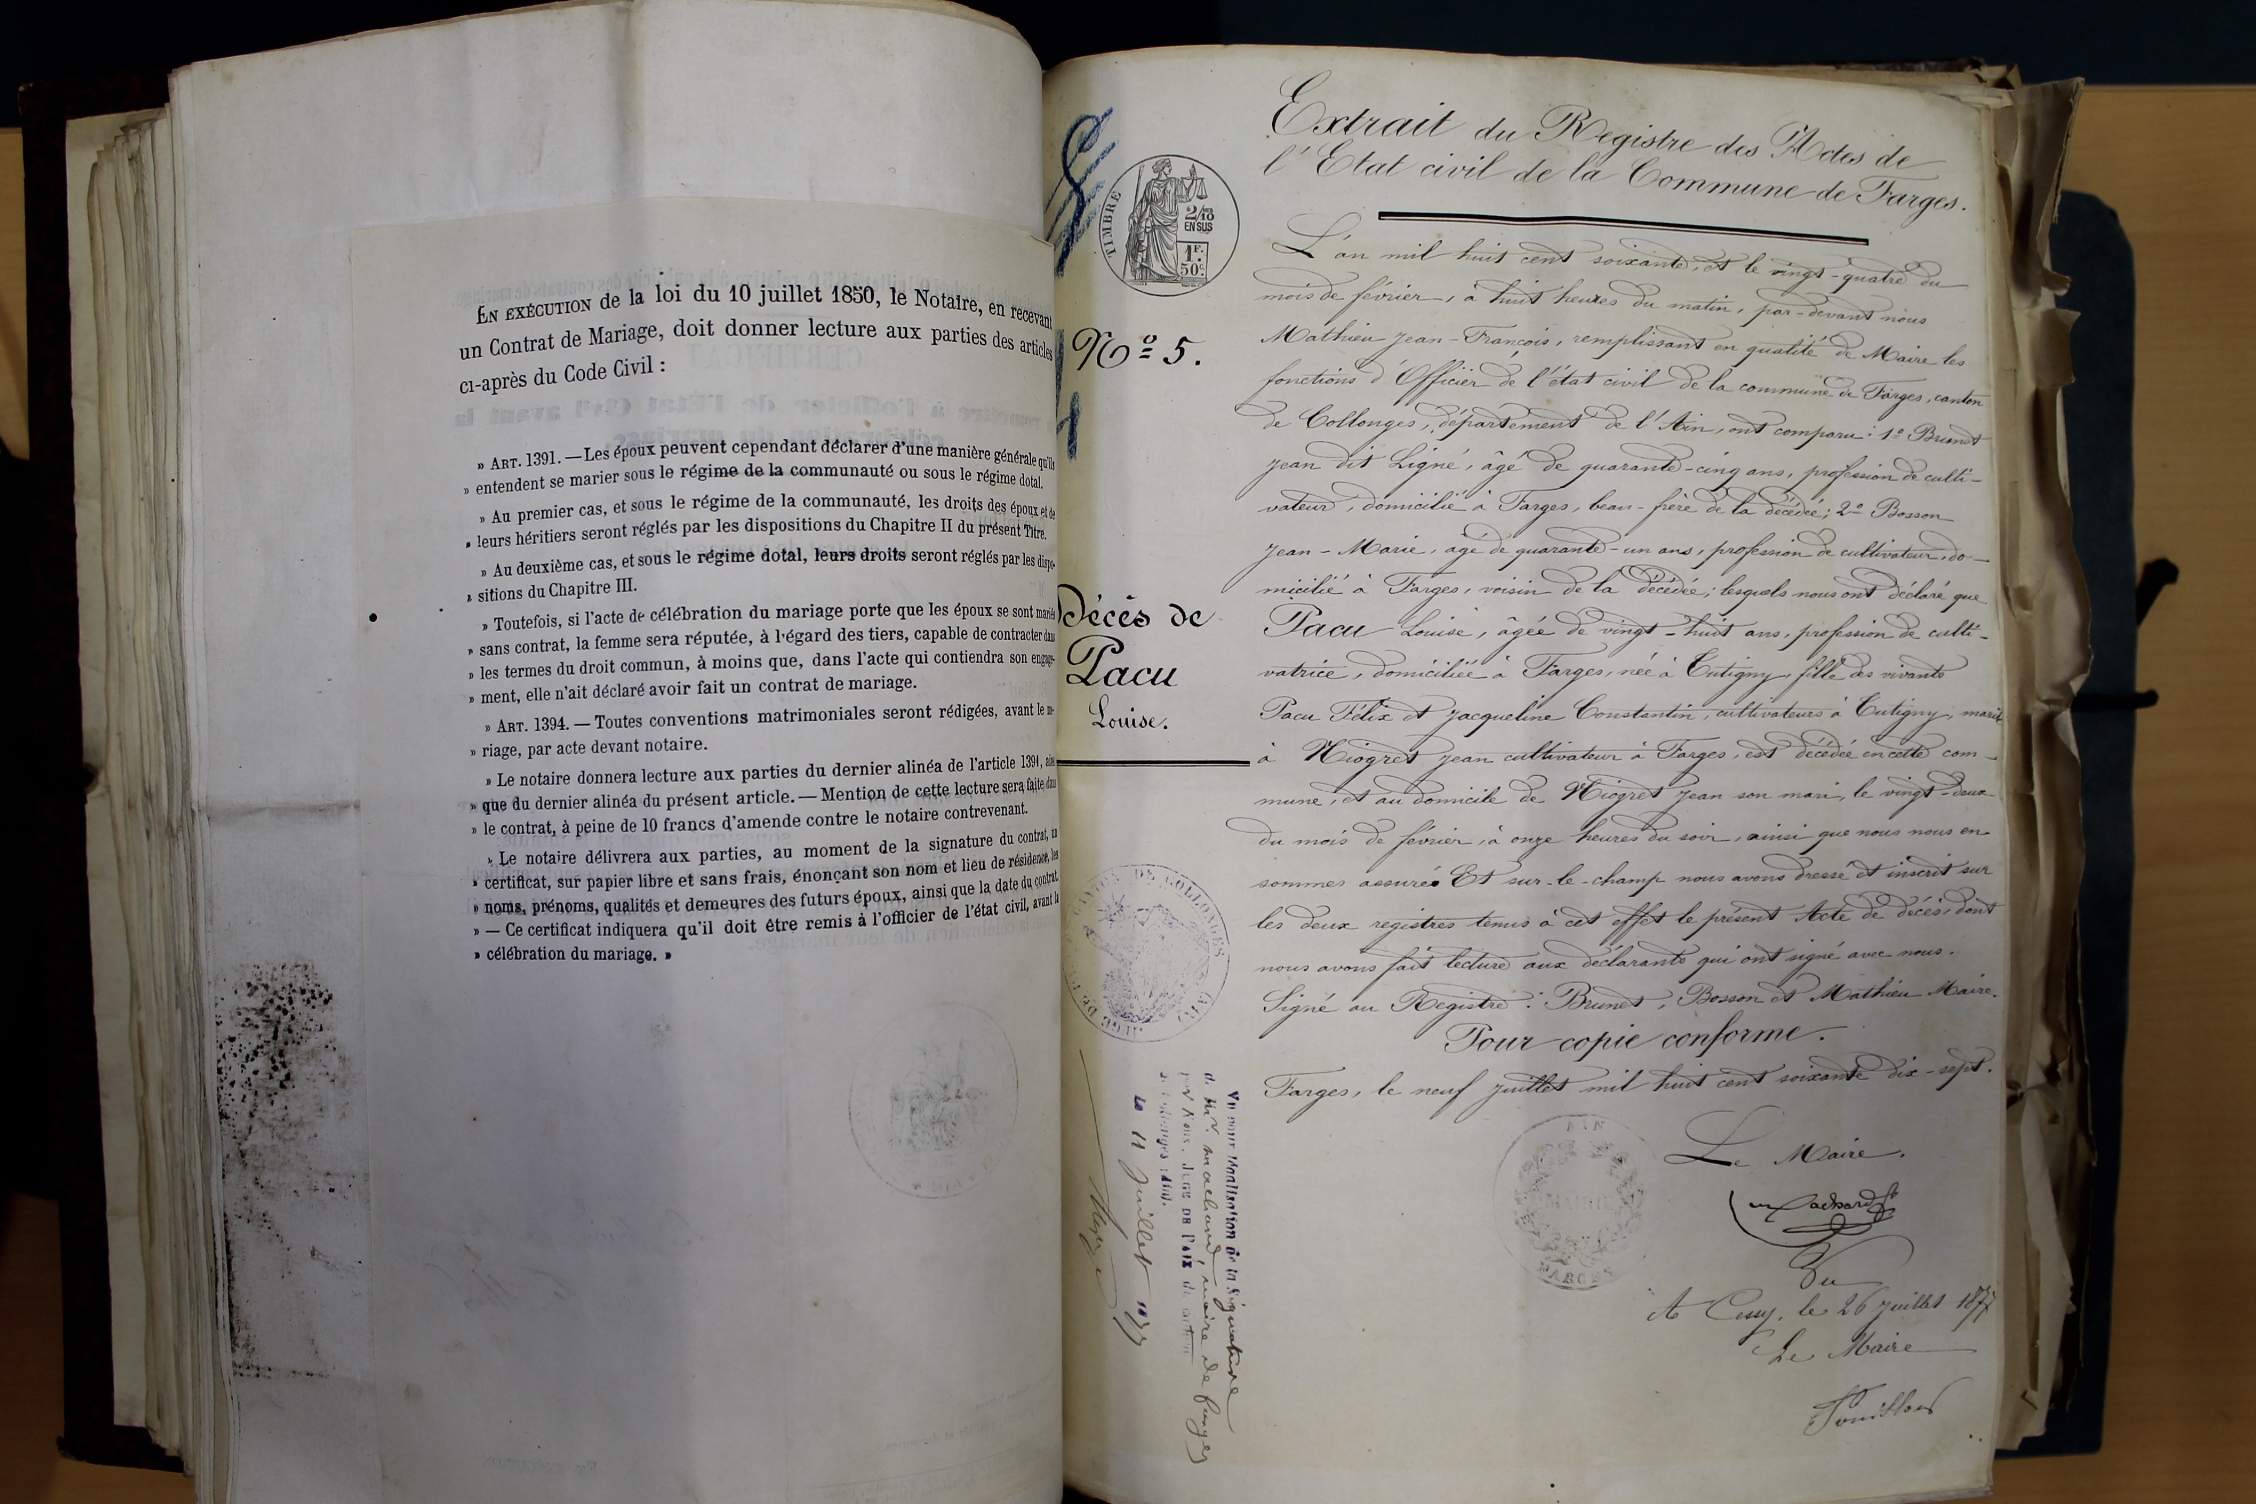 EN EXÉCUTION de la loi du 10 juillet 1850, le Notaire, en recevant
un Contrat de Mariage, doit donner lecture aux parties des articles
ci-après du Code Civil :
» ART. 1391. — Les époux peuvent cependant déclarer d'une manière générale qu'ils
» entendent se marier sous le régime de la communauté ou sous le régime dotal.
» Au premier cas, et sous le régime de la communauté, les droits des époux et de
» leurs héritiers seront réglés par les dispositions du Chapitre II du présent Titre.
» Au deuxième cas, et sous le régime dotal, leurs droits seront réglés par les dispo-
» sitions du Chapitre III.
» Toutefois, si l'acte de célébration du mariage porte que les époux se sont mariés
» sans contrat, la femme sera réputée, à l'égard des tiers, capable de contracter dans
» les termes du droit commun, à moins que, dans l'acte qui contiendra son engage-
» ment, elle n'ait déclaré avoir fait un contrat de mariage.
» ART. 1394. — Toutes conventions matrimoniales seront rédigées, avant le ma-
» riage, par acte devant notaire.
» Le notaire donnera lecture aux parties du dernier alinéa de l'article 1391, ainsi
» que du dernier alinéa du présent article. — Mention de cette lecture sera faite dans
» le contrat, à peine de 10 francs d'amende contre le notaire contrevenant.
» Le notaire délivrera aux parties, au moment de la signature du contrat, un
» certificat, sur papier libre et sans frais, énonçant son nom et lieu de résidence, les
» noms, prénoms, qualités et demeures des futurs époux, ainsi que la date du contrat.
» — Ce certificat indiquera qu'il doit être remis à l'officier de l'état civil, avant la
» célébration du mariage. »
TIMBRE
2/10
EN SUS
1F.
50c.
No 5.
Décès de
Pacu
Louise.
Extrait du Registre des Actes de
l'Etat civil de la Commune de Farges.
L'an mil huit cent soixante, et le vingt-quatre du
mois de février, à huit heures du matin, par-devant nous
Mathieu Jean-François, remplissant en qualité de Maire les
fonctions d'Officier de l'état civil de la commune de Farges, canton
de Collonges, département de l'Ain, ont comparu : 1o Brunet
Jean dit Ligné, âgé de quarante-cinq ans, profession de culti-
vateur, domicilié à Farges, beau-frère de la décédée ; 2o Bosson
Jean-Marie, âgé de quarante-un ans, profession de cultivateur, do-
micilié à Farges, voisin de la décédée ; lesquels nous ont déclaré que
Pacu Louise, âgée de vingt-huit ans, profession de culti-
vatrice, domiciliée à Farges, née à Cutigny, fille des vivants
Pacu Félix et Jacqueline Constantin, cultivateurs à Cutigny, mariée
à Niogret Jean cultivateur à Farges, est décédée en cette com-
mune, et au domicile de Niogret Jean son mari, le vingt-deux
du mois de février, à onze heures du soir, ainsi que nous nous en
sommes assurés Et sur-le-champ nous avons dressé et inscrit sur
les deux registres tenus à cet effet le présent Acte de décès, dont
nous avons fait lecture aux déclarants qui ont signé avec nous.
Signé au Registre : Brunet, Bosson et Mathieu Maire.
Pour copie conforme.
Farges, le neuf juillet mil huit cent soixante dix-sept.
Le Maire.
Machard
Vu
A Cessy, le 26 juillet 1877
Le Maire
AIN
MAIRIE
FARGES
CANTON DE COLLONGES (AIN)
JUGE DE PAIX
Vu pour légalisation de la signature
de Mr. Machard, maire de farges
par Nous, JUGE DE PAIX du canton
de Collonges (Ain).
Le 11 Juillet 1877